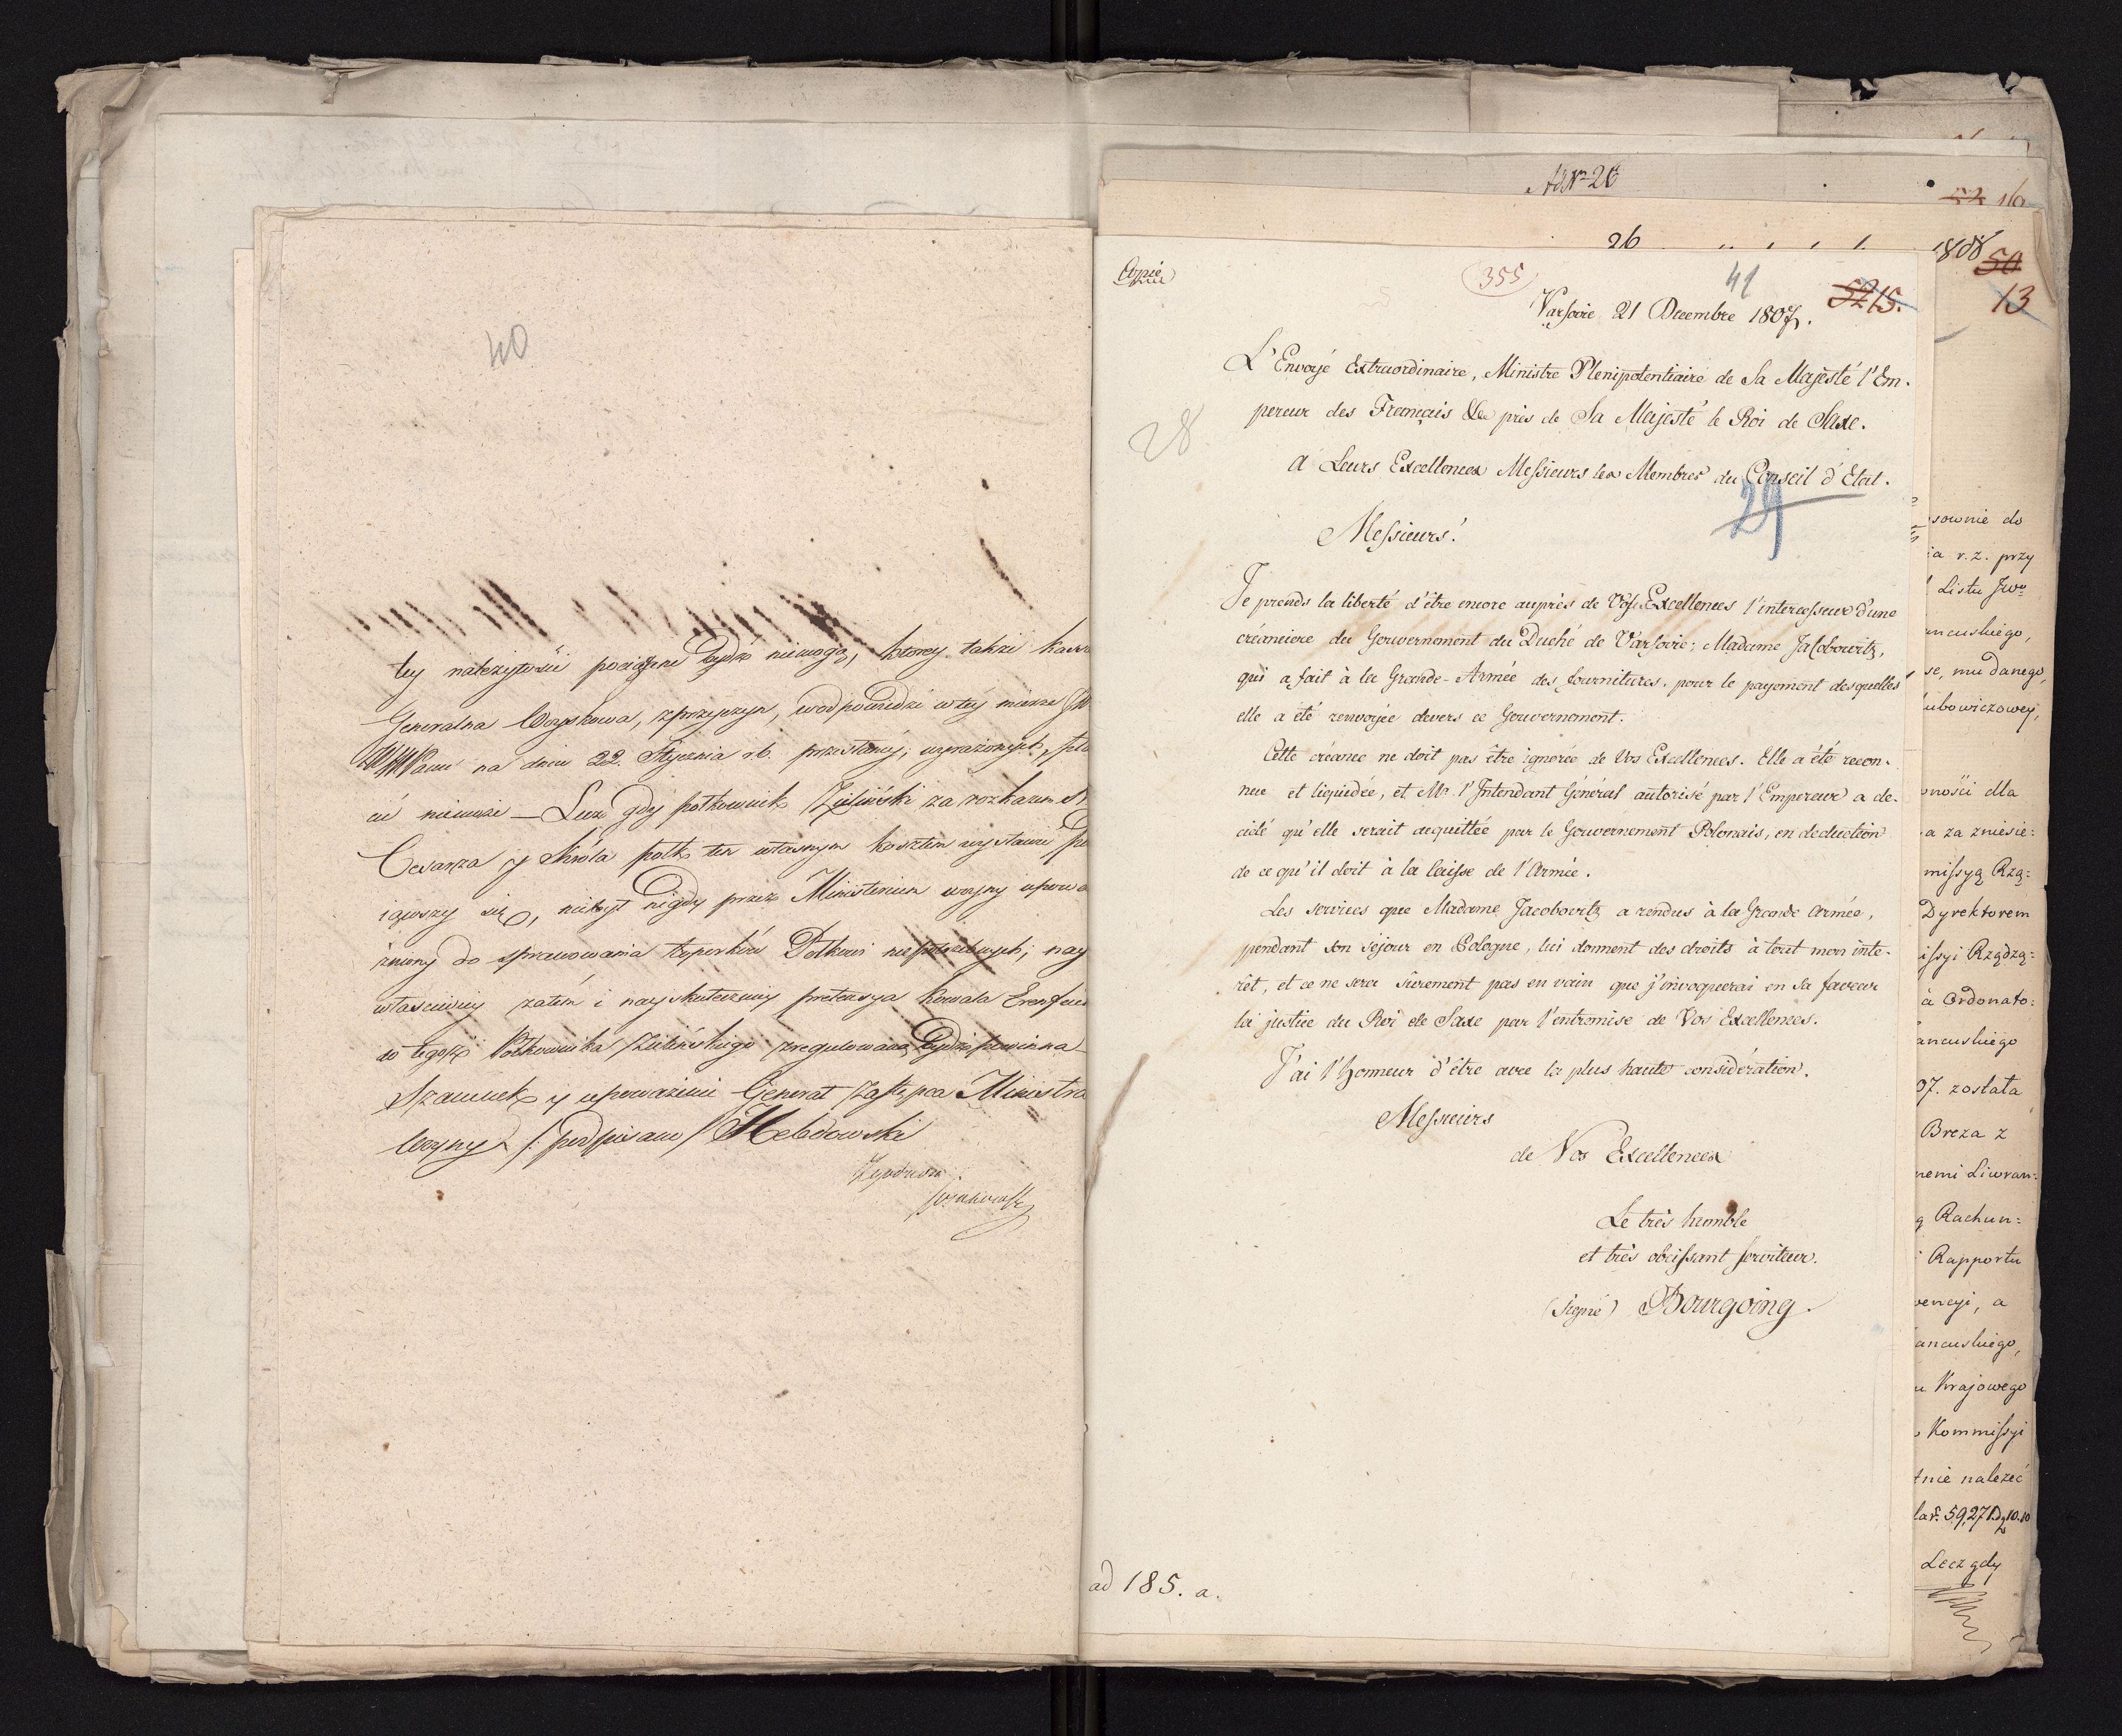 40
tey należytości pociągani bydź niemogą, ktorey także kassa
Generalna Woyskowa, z przyczyn, w odpowiedzi w tey mierze
na dniu 22. Stycznia r.b. przesłaney, wyrażonych,
cić niemoże — Lecz gdy połkownik Zieliński za rozkazem
Cesarza y Króla połk ten własnym kosztem wystawić
iąwszy się, niebył nigdy przez Ministerium woyny upowa
żniony do sprawowania Połkowi niepotrzebnych; nay
właściwiey zatém i nayskuteczniey pretensya kowala
do tegoż Połkownika Zielińskiego zregulowana bydź powinna
Szacunek y upoważnienie Generał Zastępca Ministra
Woyny /: podpisano / Hebdowski
Ad Nr 26
26 1808
52 16
50
13
Copie
355
41
52 15.
Varsovie 21 Decembre 1807.
L'Envoyé Extraordinaire, Ministre Plenipotentiaire de Sa Majesté l'Em-
pereur des Français &c près de Sa Majesté le Roi de Saxe.
28
A Leurs Excellences Messieurs les Membres du Conseil d'Etat.
29
Messieurs!
Je prends la liberté d'être encore auprès de Vos Excellences l'intercesseur d'une
créanciere du Gouvernement du Duché de Varsovie; Madame Jacobowitz,
qui a fait à la Grande-Armée des fournitures, pour le payement desquelles
elle a été renvoyée devers ce Gouvernement.
Cette créance ne doit pas être ignorée de Vos Excellences. Elle a été recon-
nue et liquidée, et Mr. l'Intendant Général autorisé par l'Empereur a de-
cidé qu'elle serait acquittée par le Gouvernement Polonais, en deduction
de ce qu'il doit à la Caisse de l'Armée.
Les services que Madame Jacobowitz a rendus à la Grande Armée,
pendant son séjour en Pologne, lui donnent des droits à tout mon inte-
rêt, et ce ne sera surement pas en vain que j'invoquerai en sa faveur
la justice du Roi de Saxe par l'entremise de Vos Excellences.
J'ai l'honneur d'être avec la plus haute considération.
Messieurs
de Vos Excellences
Le très humble
et très obeissant serviteur.
(signé) Bourgoing.
ad 185. a.
sownie do
ia r.z. przy
Listu JWo
ancuskiego,
se, mu danego,
ubowiczowey,
ności dla
a za zniesie:
missyą Rzą:
Dyrektorem
issyi Rządzą:
à Ordonato:
ancuskiego
07. została
Breza z
nemi Liwran:
ą Rachun:
Rapportu
wencyi, a
ancuskiego,
u Krajowego
Kommissyi
tnie należeć
59,271
Lecz gdy